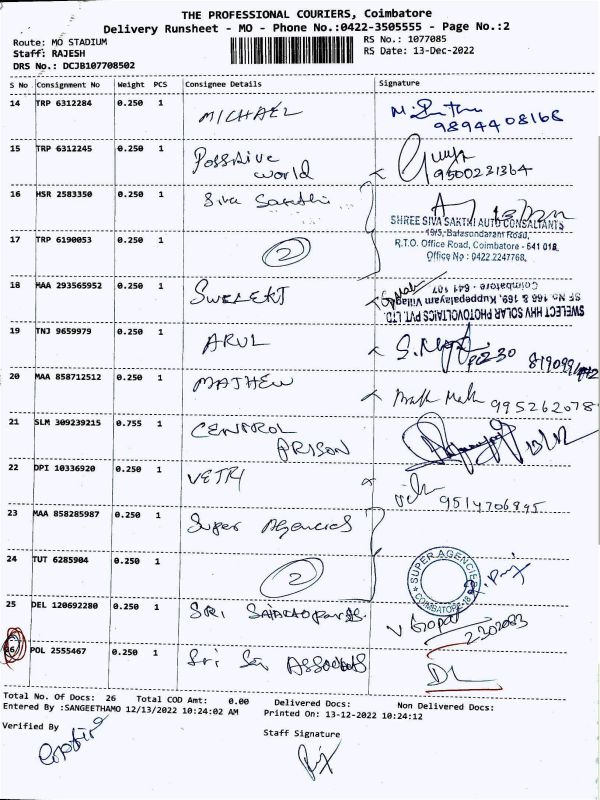 THE PROFESSIONAL COURIERS, Coimbatore
Delivery Runsheet - MO - Phone No.:0422-3505555 - Page No.:2
Route: MO STADIUM RS No.: 1077085
Staff: RAJESH RS Date: 13-Dec-2022
DRS No.: DCJB107708502
S No Consignment No Weight PCS Consignee Details Signature
14 TRP 6312284 0.250 1 MICHAEL
9894408168
15 TRP 6312245 0.250 1 Possitive
world 9500221364
16 HSR 2583350 0.250 1 Siva Sakthi
SHREE SIVA SAKTHI AUTO CONSALTANTS
19/5, Balasondaram Road,
17 TRP 6190053 0.250 1 2 R.T.O. Office Road, Coimbatore - 641 018.
Office No : 0422 2247768.
18 MAA 293565952 0.250 1 SWELEKT
SWELECT HHV SOLAR PHOTOVOLTAICS PVT. LTD.
SF No 166 & 169, Kuppepalayam Village
Coimbatore - 641 107
19 TNJ 9659979 0.250 1 ARUL
20 MAA 858712512 0.250 1 MATHEW
995262078
21 SLM 309239215 0.755 1 CENTROL
PRISON
22 DPI 10336920 0.250 1 VETRI
9514706895
23 MAA 858285987 0.250 1 Super Agencies
24 TUT 6285904 0.250 1 2 SUPER AGENCIES
COIMBATORE-18
25 DEL 120692280 0.250 1 SRI
V Gopal
26 POL 2555467 0.250 1 Sri Sai Associates
Total No. Of Docs: 26 Total COD Amt: 0.00 Delivered Docs: Non Delivered Docs:
Entered By :SANGEETHAMO 12/13/2022 10:24:02 AM Printed On: 13-12-2022 10:24:12
Verified By Staff Signature